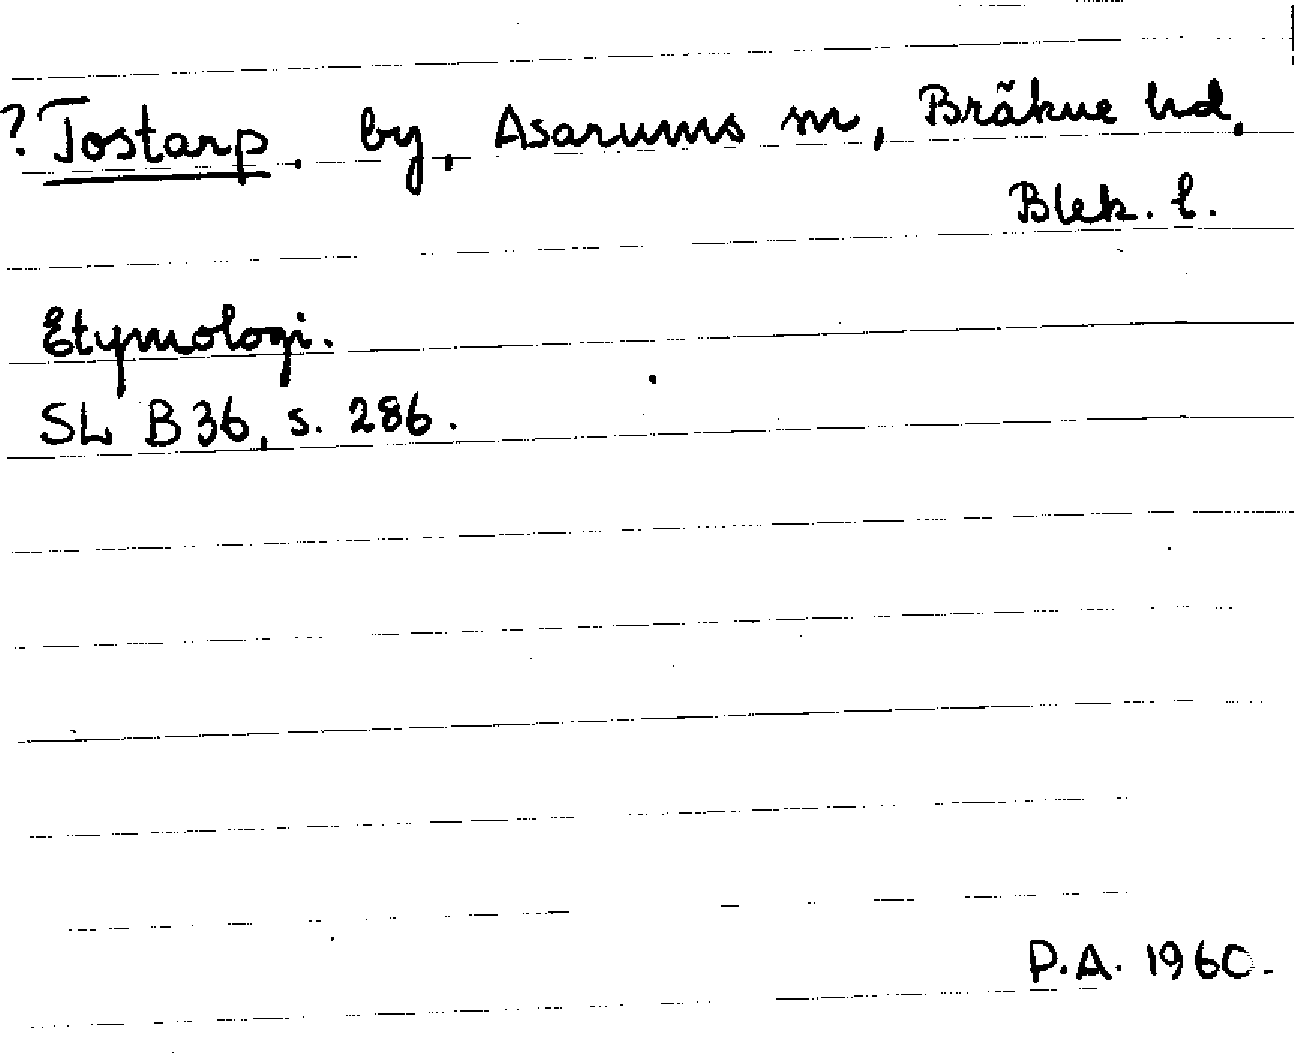 ? Tostarp. by, Asarums sn, Bräkne hd,
Blek. l.
Etymologi.
SL B 36, s. 286.
P.A. 1960.